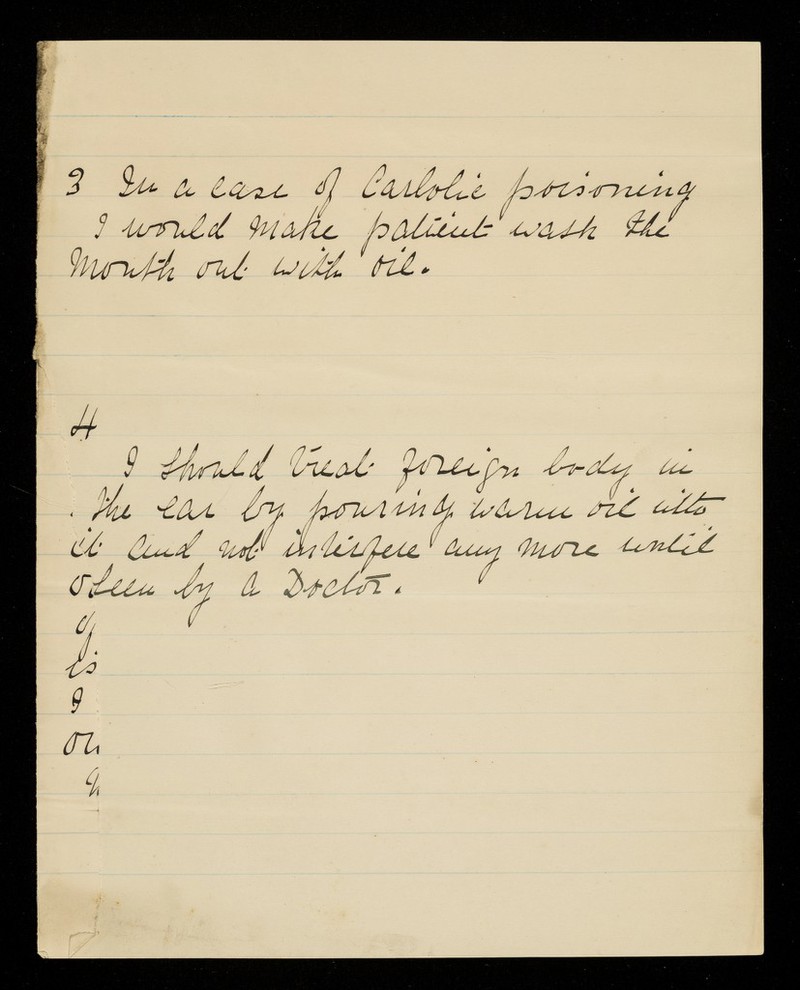 3 In a case of Carbolic poisoning
I would make patient wash the
mouth out with oil.
4
I should treat foreign body in
the ear by pouring warm oil into
it and not interfere any more until
seen by a Doctor.
is
I
on